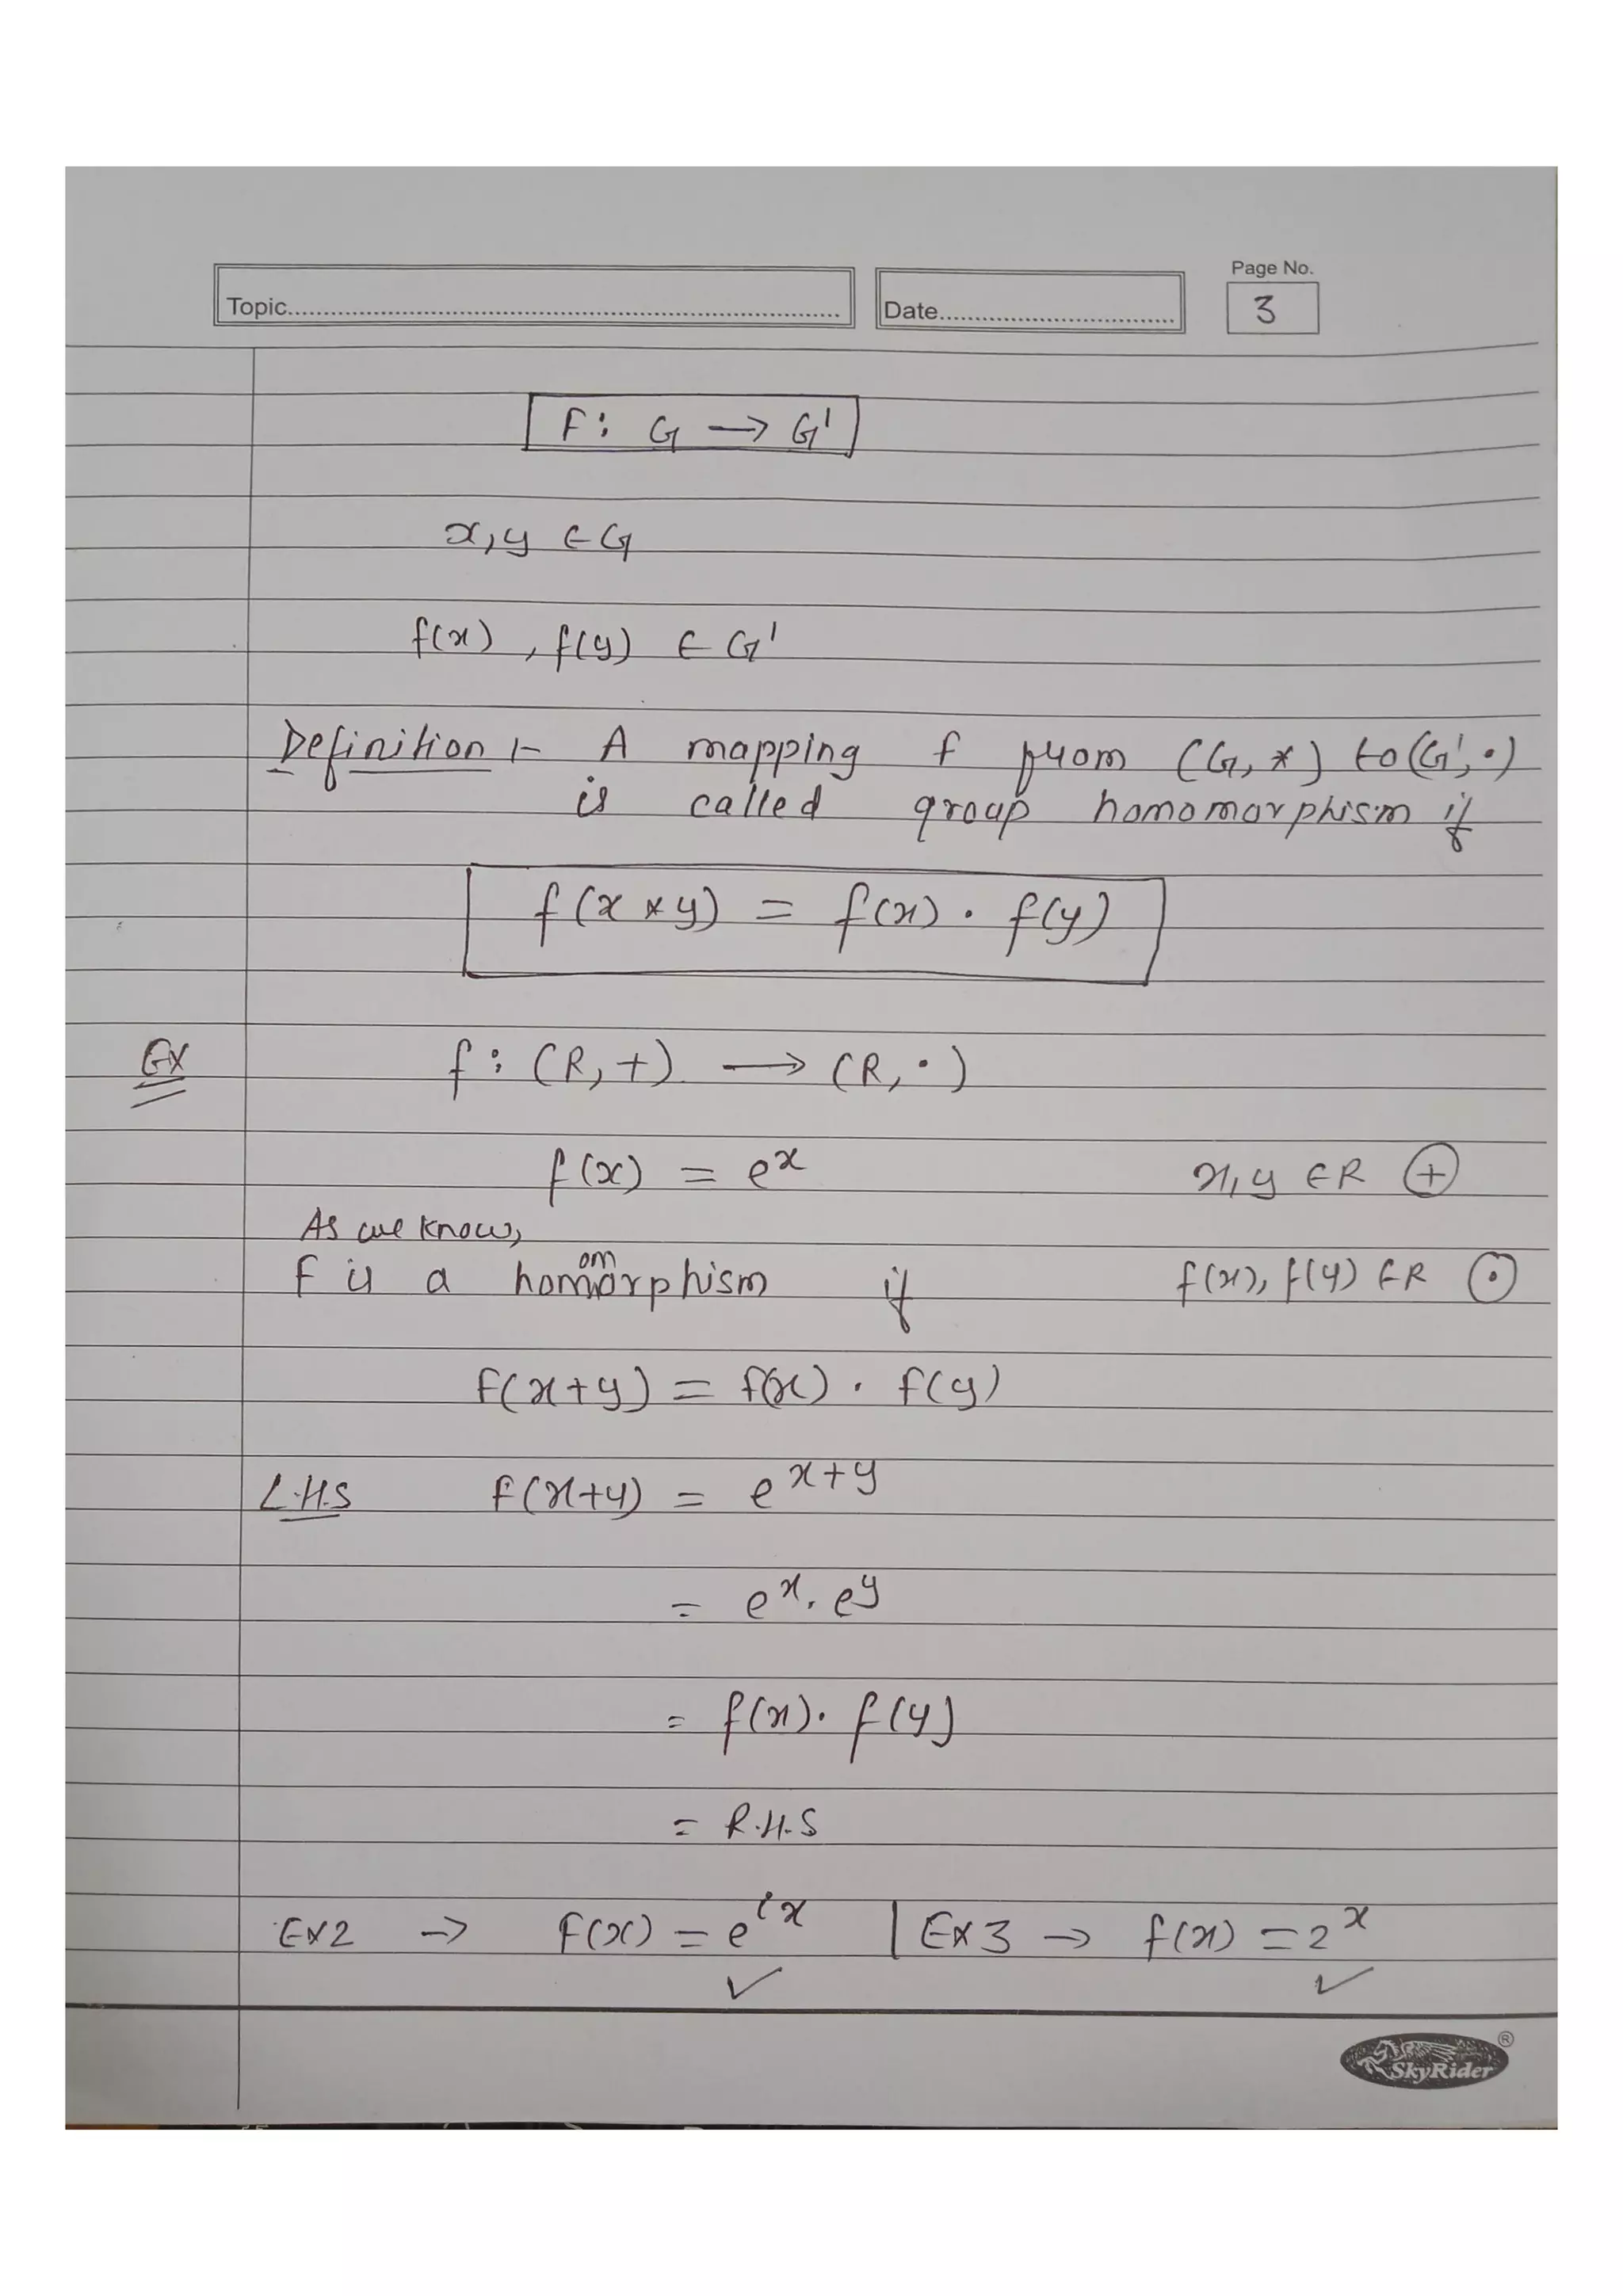 Page No.
Topic.......... Date.......... 3
F: G → G'
x, y ∈ G
f(x), f(y) ∈ G'
Definition :- A mapping f from (G, *) to (G', •)
is called group homomorphism if
f(x * y) = f(x) • f(y)
Ex f : (R, +) → (R, •)
f(x) = e^x x, y ∈ R ⊕
As we know,
F is a homomorphism if f(x), f(y) ∈ R ⊙
F(x+y) = f(x) • f(y)
L.H.S F(x+y) = e^x+y
= e^x . e^y
= f(x) • f(y)
= R.H.S
Ex2 → F(x) = e^ix | Ex3 → f(x) = 2^x
✓ ✓
SkyRider ®